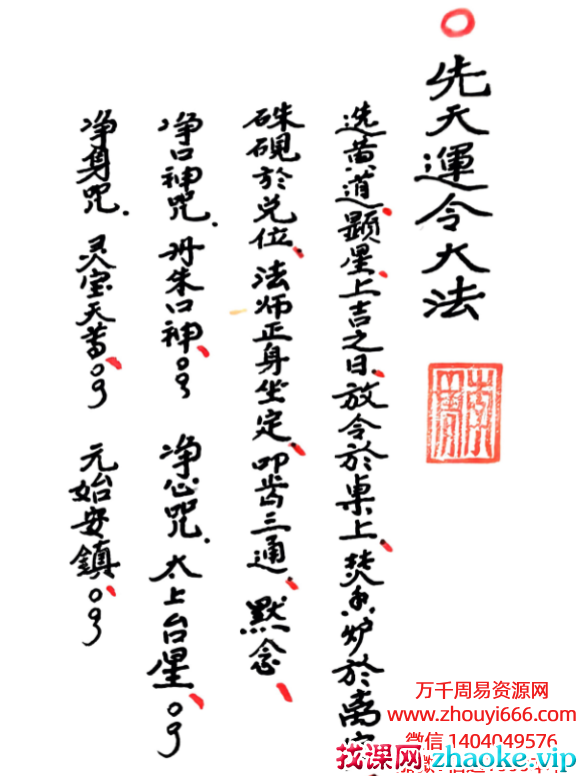 先天運令大法
选黄道顕星上吉之日放令於桌上焚香炉於离宫
硃硯於兑位法师正身坐定叩齿三通默念
净口神咒.丹朱口神。净心咒.太上台星。
净身咒.灵宝天尊。元始安鎮。
万千周易资源网
www.zhouyi666.com
微信 1404049576
找课网 zhaoke.vip